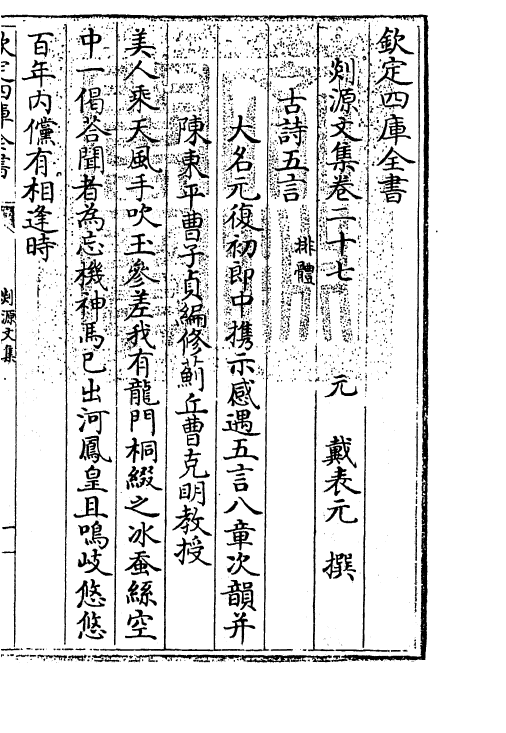 欽定四庫全書
剡源文集卷二十七 元 戴表元 撰
古詩五言 排體
大名元復初即中携示感遇五言八章次韻并
陳東平曹子貞編修薊丘曹克明教授
美人乘天風手吹玉參差我有龍門桐綴之冰蚕絲空
中一偈答聞者為忘機神馬已出河鳳皇且鳴岐悠悠
百年内儻有相逢時
欽定四庫全書
剡源文集
一